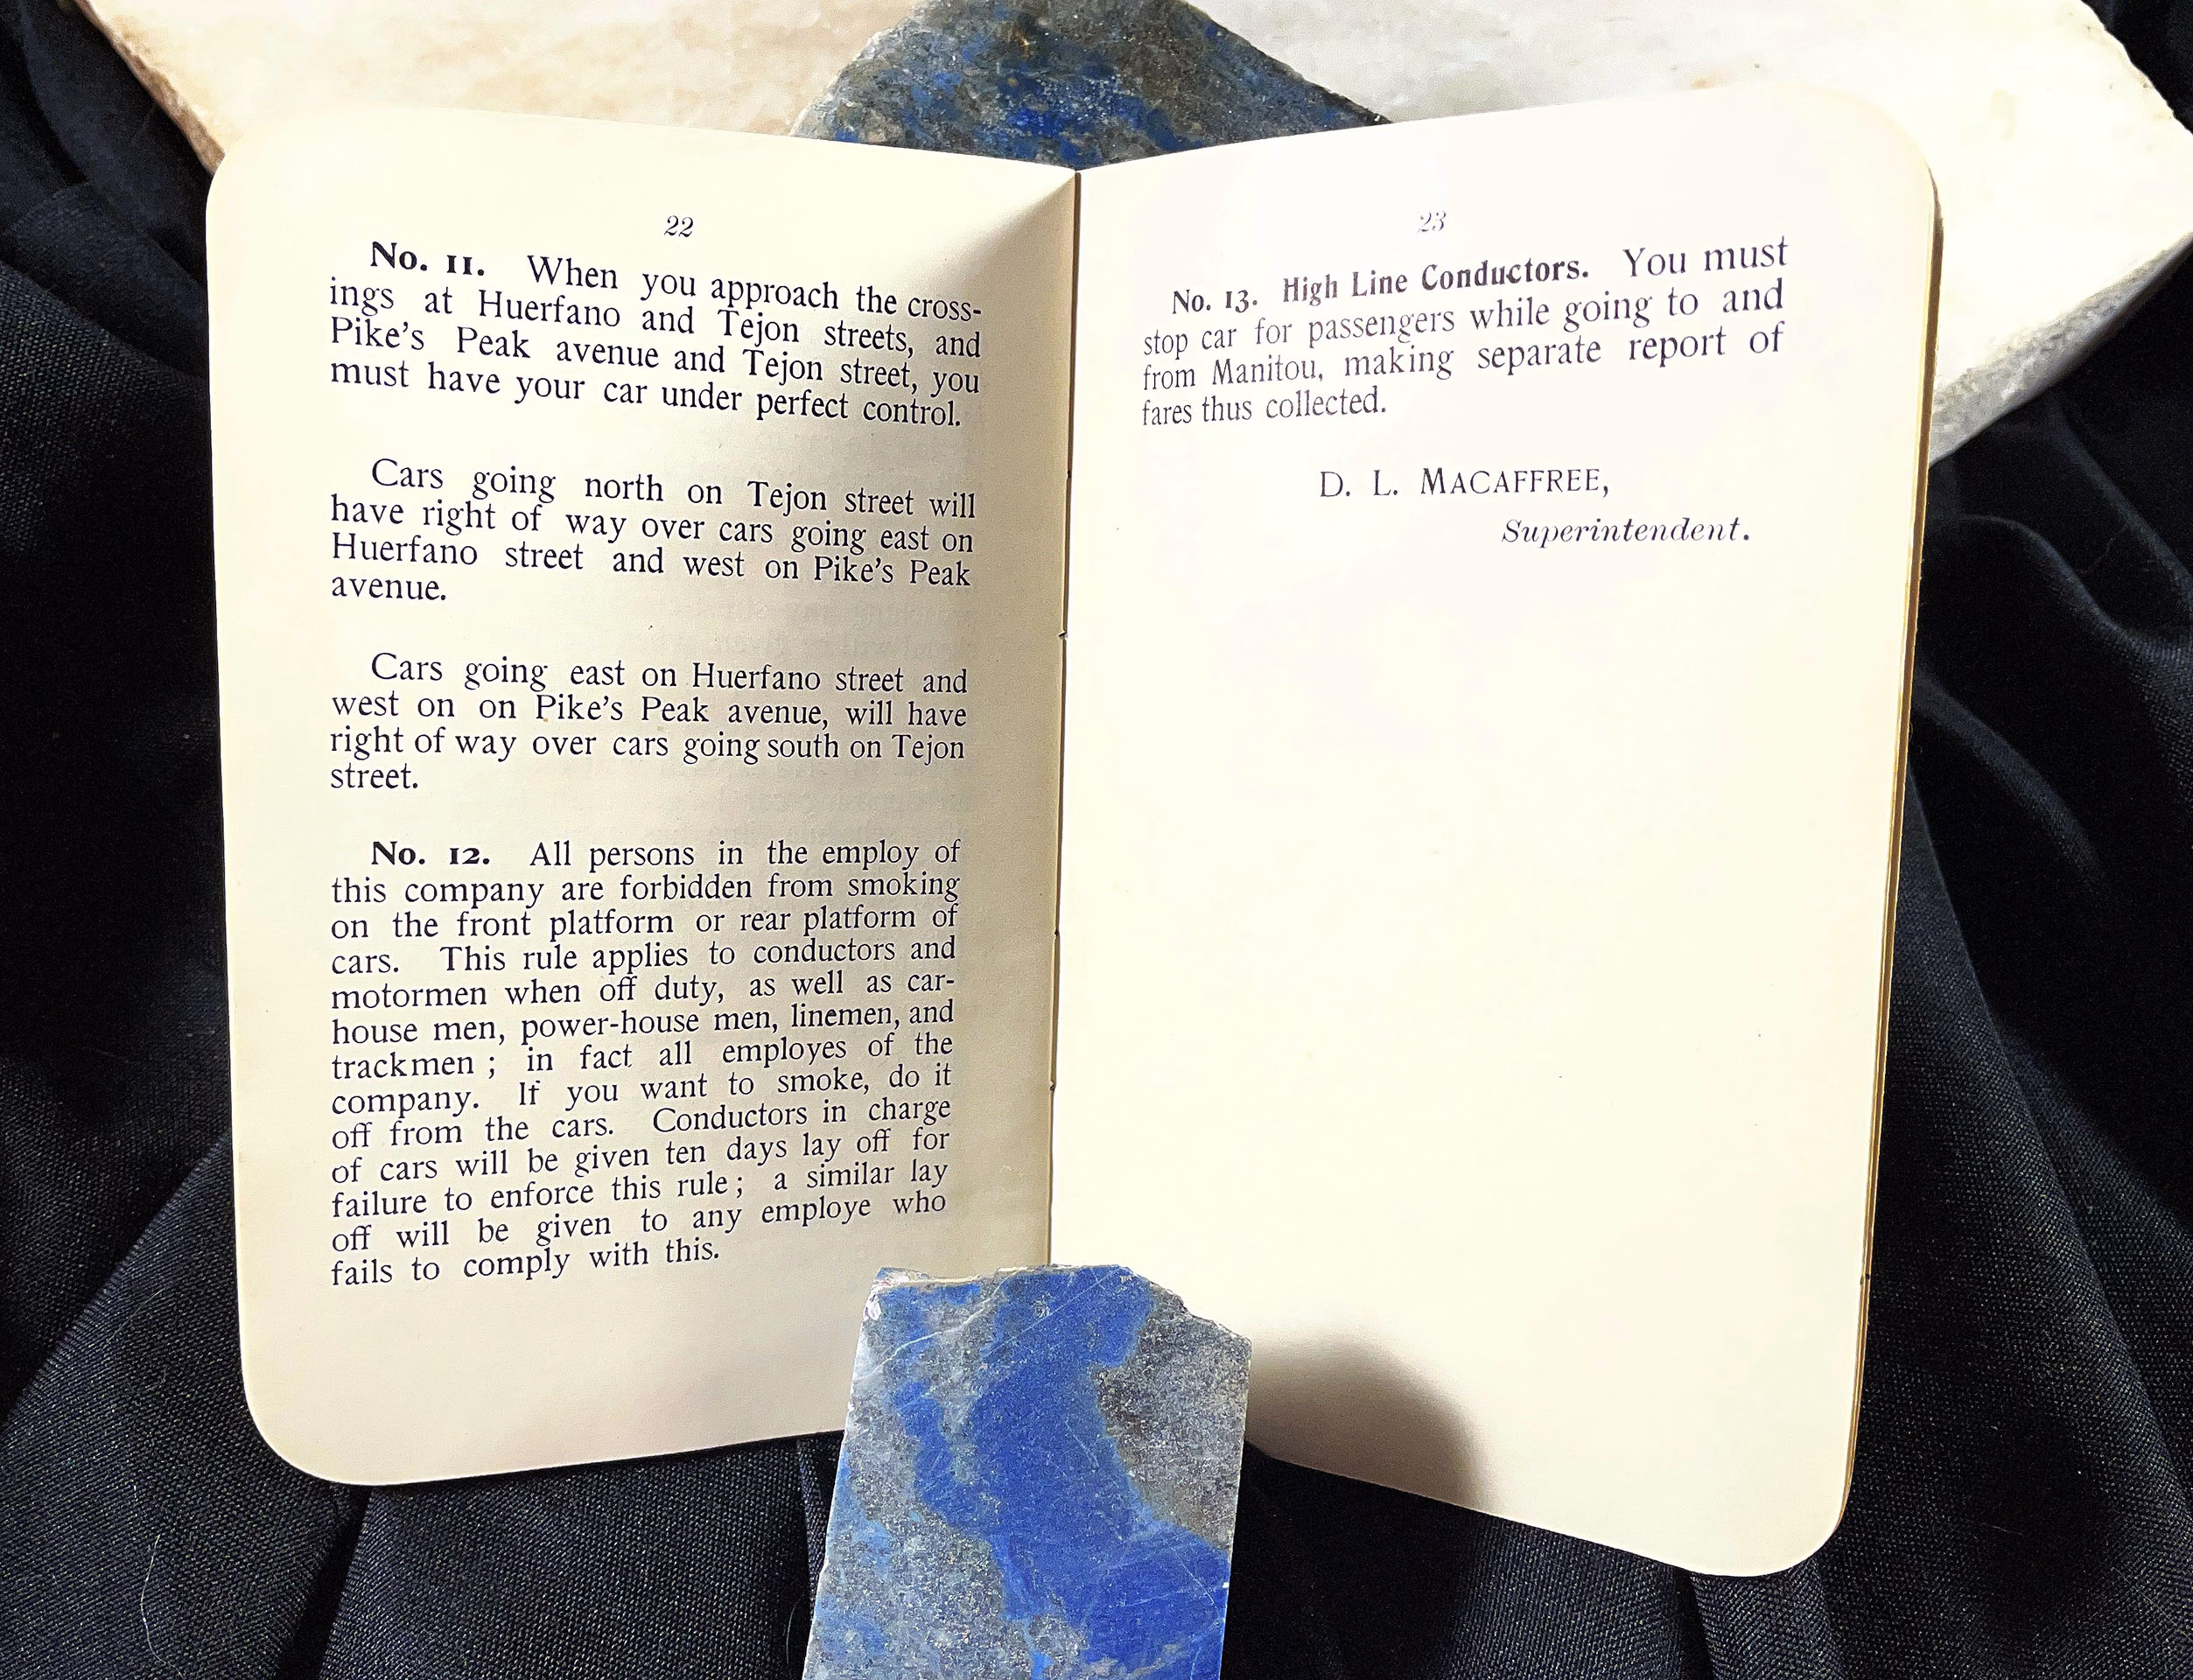 22
No. 11. When you approach the cross-
ings at Huerfano and Tejon streets, and
Pike's Peak avenue and Tejon street, you
must have your car under perfect control.
Cars going north on Tejon street will
have right of way over cars going east on
Huerfano street and west on Pike's Peak
avenue.
Cars going east on Huerfano street and
west on on Pike's Peak avenue, will have
right of way over cars going south on Tejon
street.
No. 12. All persons in the employ of
this company are forbidden from smoking
on the front platform or rear platform of
cars. This rule applies to conductors and
motormen when off duty, as well as car-
house men, power-house men, linemen, and
trackmen ; in fact all employes of the
company. If you want to smoke, do it
off from the cars. Conductors in charge
of cars will be given ten days lay off for
failure to enforce this rule ; a similar lay
off will be given to any employe who
fails to comply with this.
23
No. 13. High Line Conductors. You must
stop car for passengers while going to and
from Manitou, making separate report of
fares thus collected.
D. L. MACAFFREE,
Superintendent.